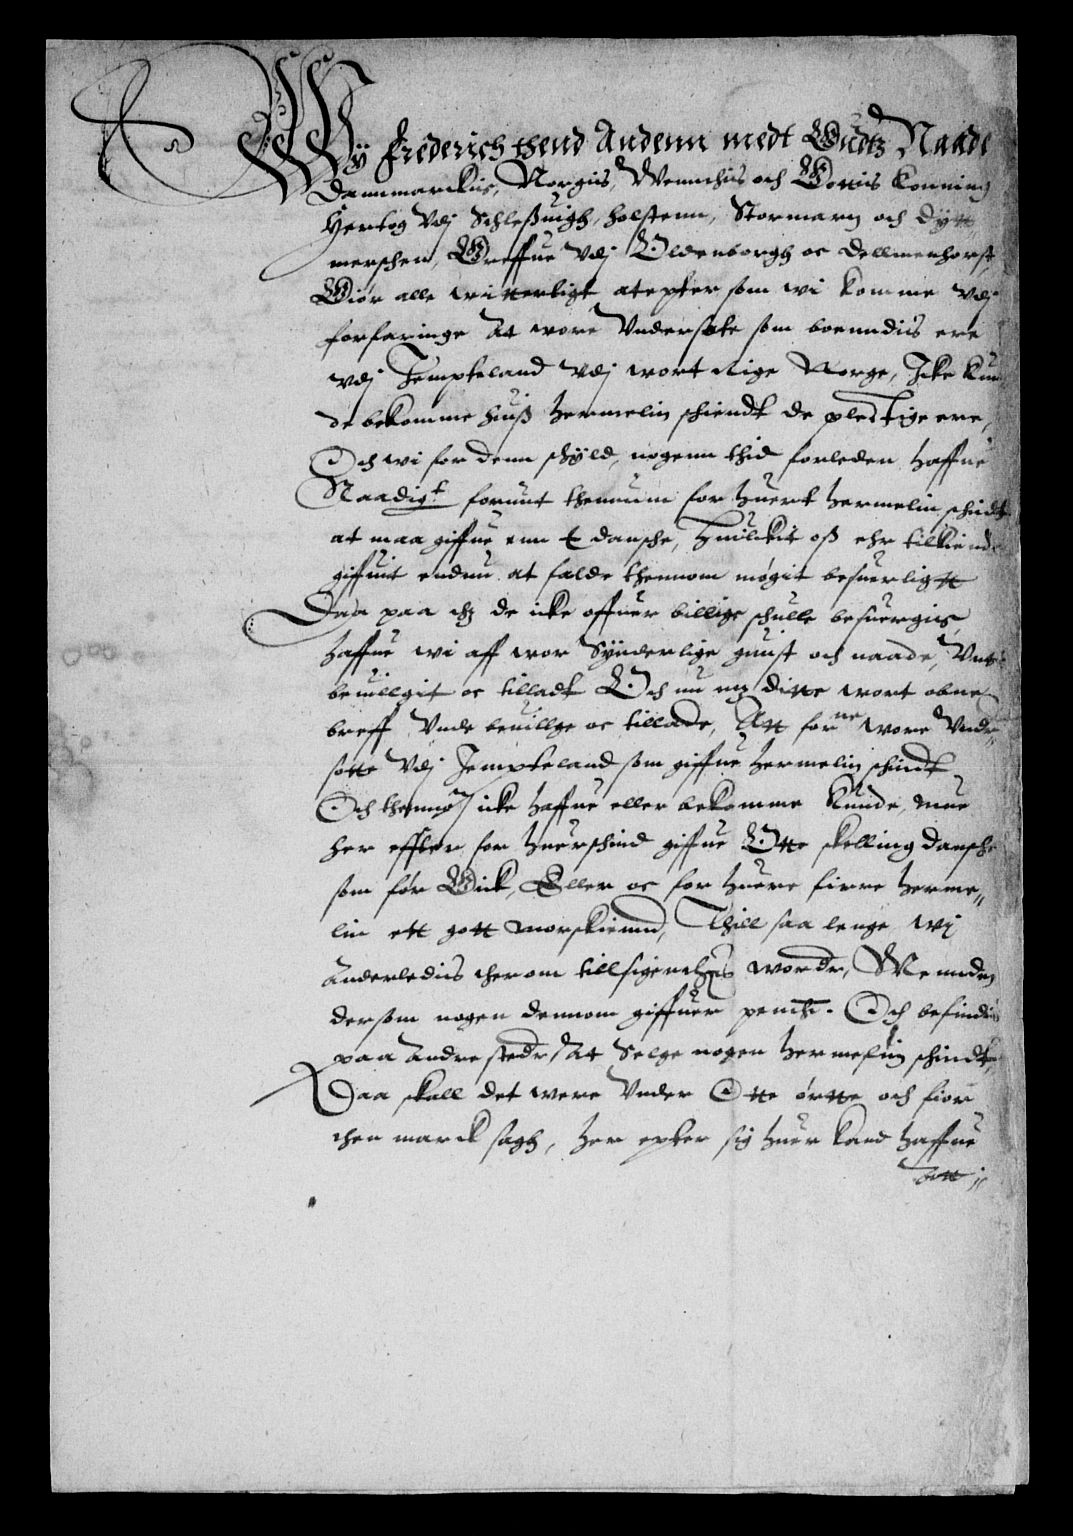 Wÿ Frederich thend Andenn medt Gudtz Naade
Dannmarckis, Norgis, Wenndis och Gottis Konning
Hertog Vdj Schleßuigh, Holstenn, Stormarn och Dÿtt
merschen, Greffue Vdj Oldenborgh oc Dellmenhorst,
Giør alle witterligt at epter som wi komme Vdj
forfaringe At wore Vndersotte som boenndis ere
Vdj Jempteland Vdj wort Rige Norge, Icke kun
de bekomme huiß Hermelin schiendt de plegtige ere,
Och wi for denn schÿld, nogenn thid forleden Haffue
Naadigt forunt thennum for huert Hermelin schindt
at maa giffue enn ß dansche, Huilckit oß ehr tilkiende
giffuit endnu at falde thennom møgit besuerligtt
Daa paa dz de icke offuer billige schulle besuergis,
Haffue wi aff wor Sÿnderlige gunst och naade, Vnt
beuillgit oc tilladt Och nu mz ditte wort obne
breff Vnde beuillge oc tillade, Att forne wore Vnder„
sotte Vdj Jempteland som giffue Hermelin schindt
Och thennom icke haffue eller bekomme kunde, mue
her effter for huer schind giffue Otte skelling dansche
som før Gick, Eller oc for huere firre Herme„
lin ett gott morskiennd, Thill saa lenge wj
Anderledis therom tillsigendis worder, Menn den
dersom nogen dennom giffuer penge. Och befindis
paa andre steder At Selge nogen Hermelin schindt,
Daa skall det were Vnder Otte ørtte och fior
then marck sagh, Her epter sig huer kand Haffue
att„